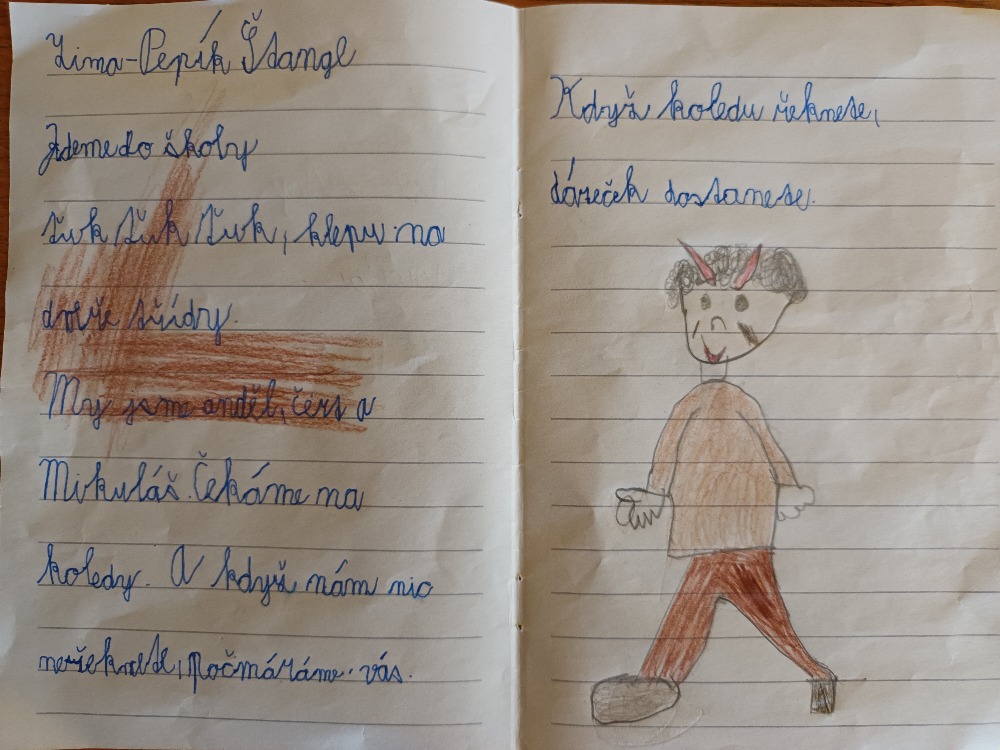 Zima-Pepík Štangl
Jdeme do školy
ťuk ťuk ťuk, klepu na
dveře třídy.
My jsme anděl, čert a
Mikuláš. Čekáme na
koledy. A když nám nic
neřeknete, počmáráme vás.
Když koledu řeknete,
dáreček dostanete.